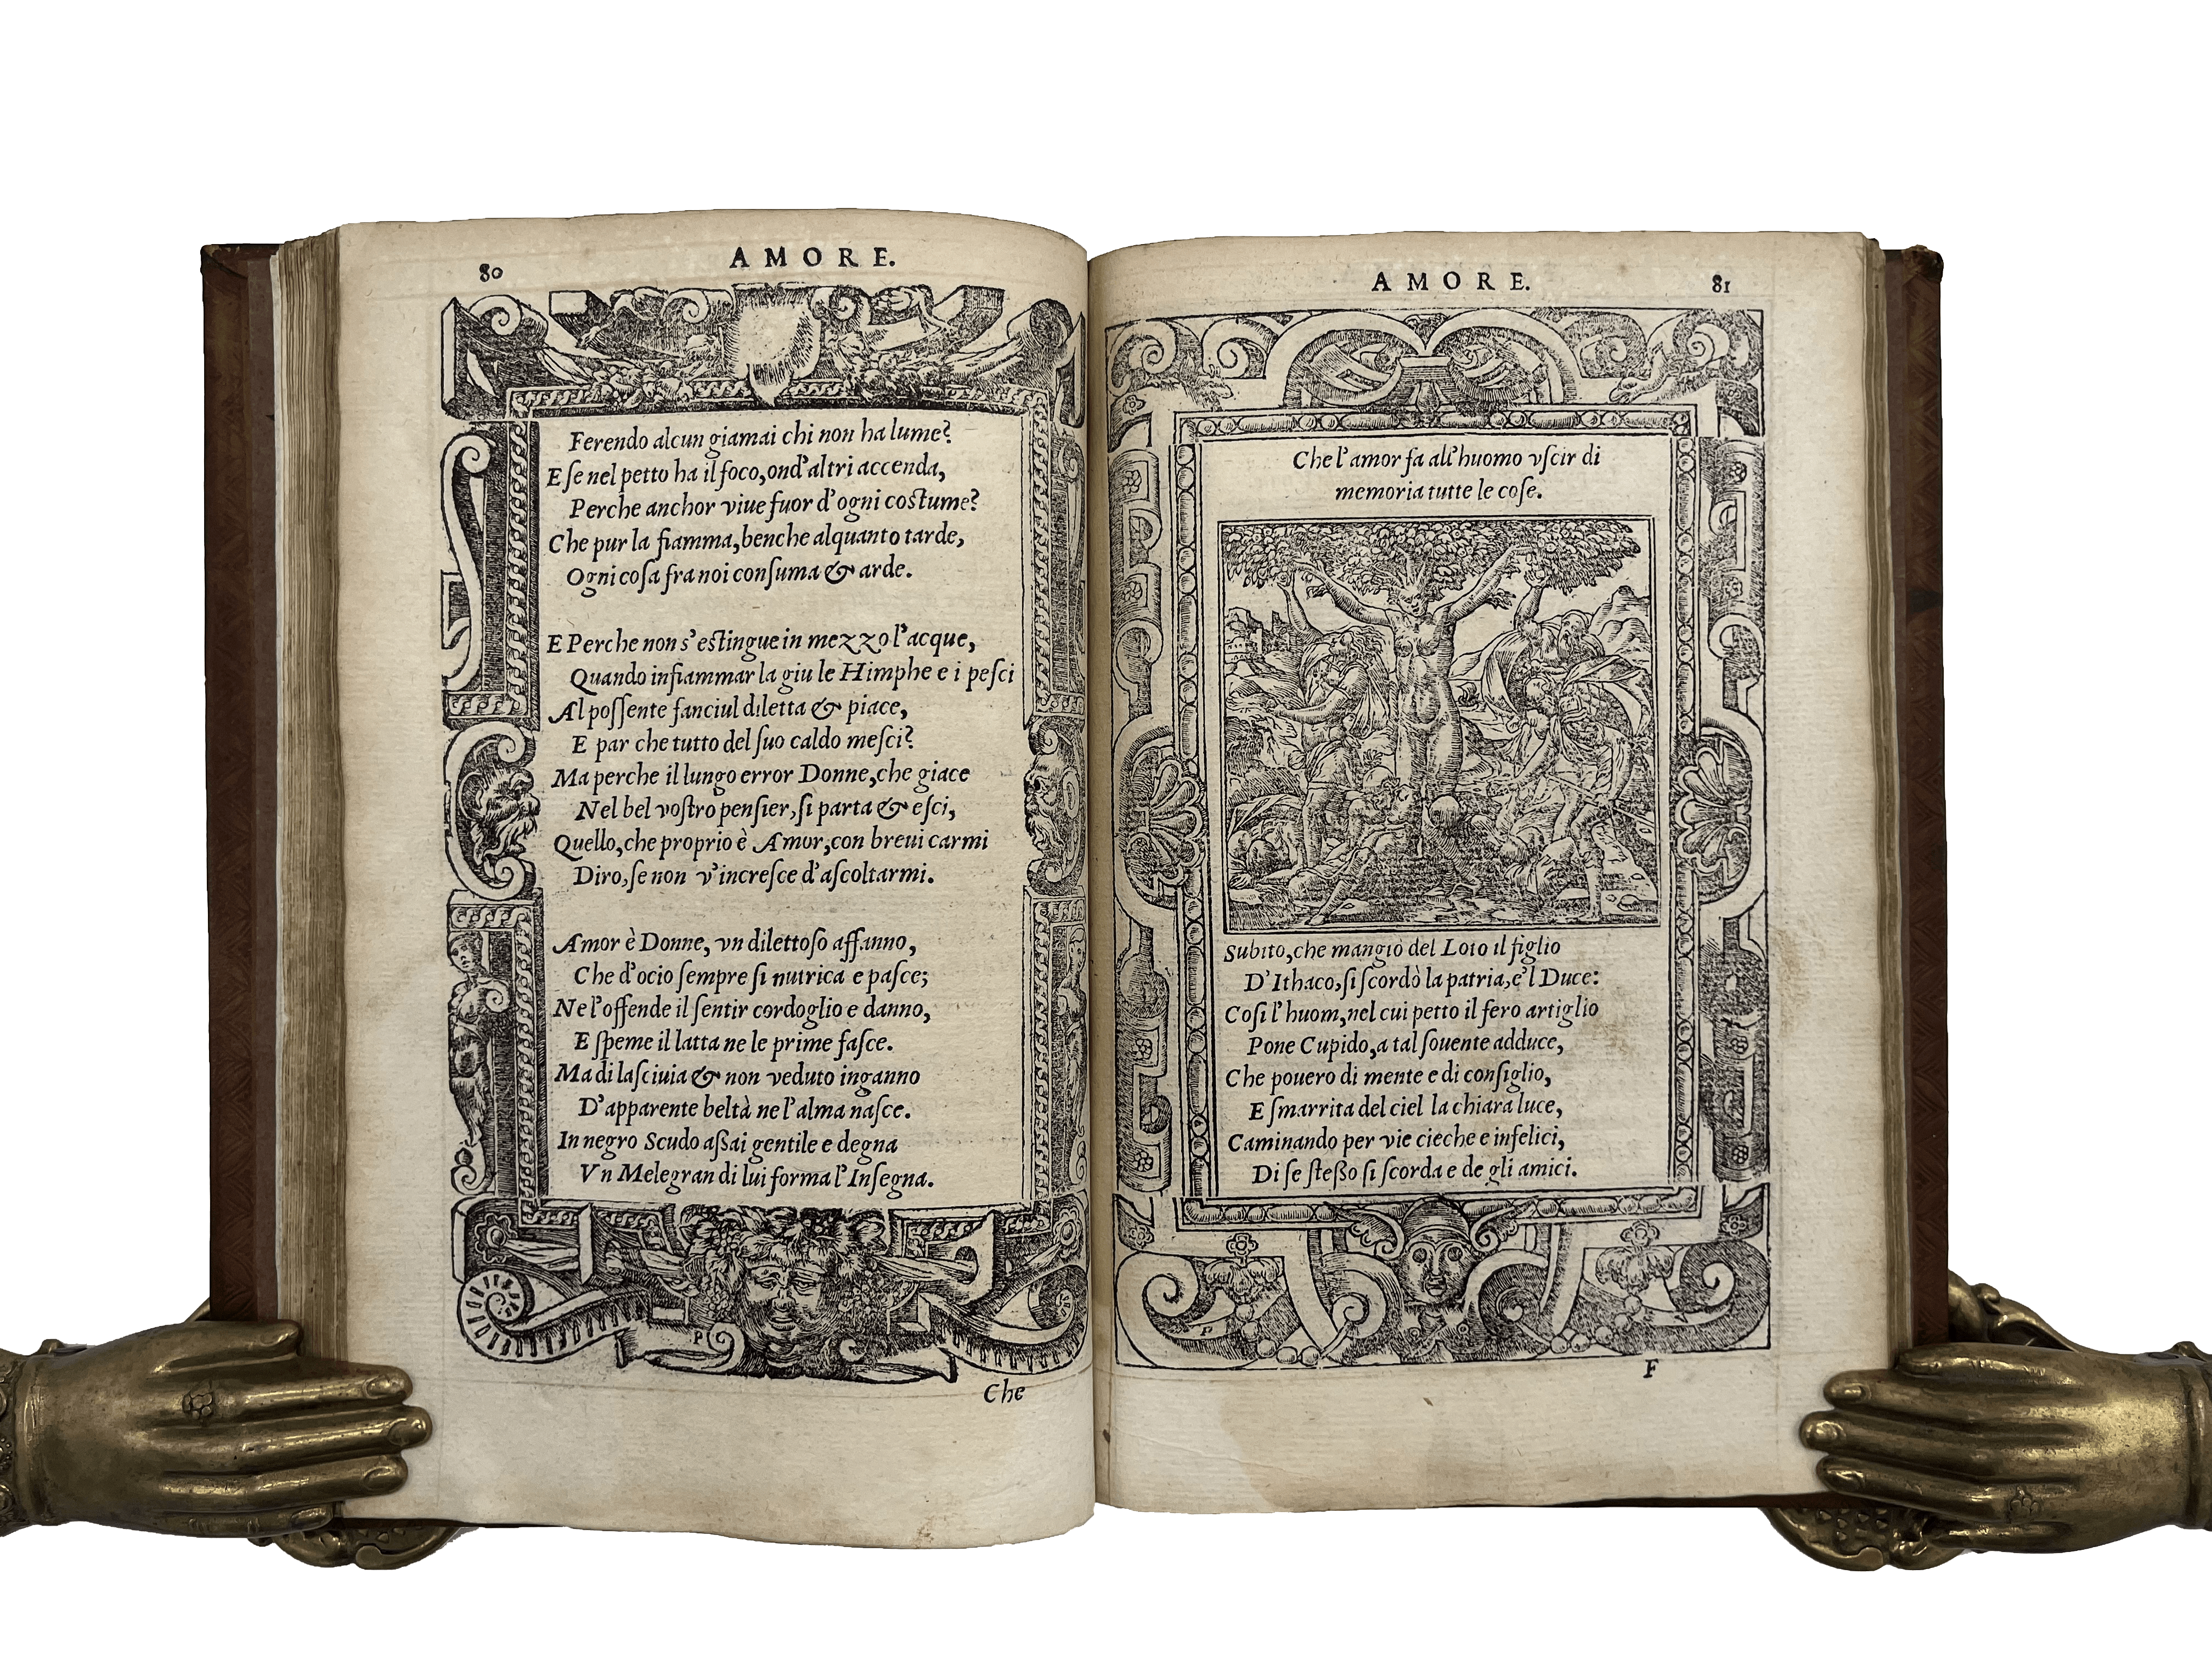 80
AMORE.
Ferendo alcun giamai chi non ha lume?
E ſe nel petto ha il foco, ond'altri accenda,
Perche anchor viue fuor d'ogni coſtume?
Che pur la fiamma, benche alquanto tarde,
Ogni coſa fra noi conſuma & arde.
E Perche non s'eſtingue in mezzo l'acque,
Quando infiammar la giu le Himphe e i peſci
Al poſſente fanciul diletta & piace,
E par che tutto del ſuo caldo meſci?
Ma perche il lungo error Donne, che giace
Nel bel voſtro penſier, ſi parta & eſci,
Quello, che proprio è Amor, con breui carmi
Diro, ſe non v'increſce d'aſcoltarmi.
Amor è Donne, vn dilettoſo affanno,
Che d'ocio ſempre ſi nutrica e paſce;
Ne l'offende il ſentir cordoglio e danno,
E ſpeme il latta ne le prime faſce.
Ma di laſciuia & non veduto inganno
D'apparente beltà ne l'alma naſce.
In negro Scudo aſsai gentile e degna
Vn Melegran di lui forma l'Inſegna.
P
Che
AMORE.
81
Che l'amor fa all'huomo vſcir di
memoria tutte le coſe.
Subito, che mangiò del Loto il figlio
D'Ithaco, ſi ſcordò la patria, e'l Duce:
Coſi l'huom, nel cui petto il fero artiglio
Pone Cupido, a tal ſouente adduce,
Che pouero di mente e di conſiglio,
E ſmarrita del ciel la chiara luce,
Caminando per vie cieche e infelici,
Di ſe ſteßo ſi ſcorda e de gli amici.
P V
F